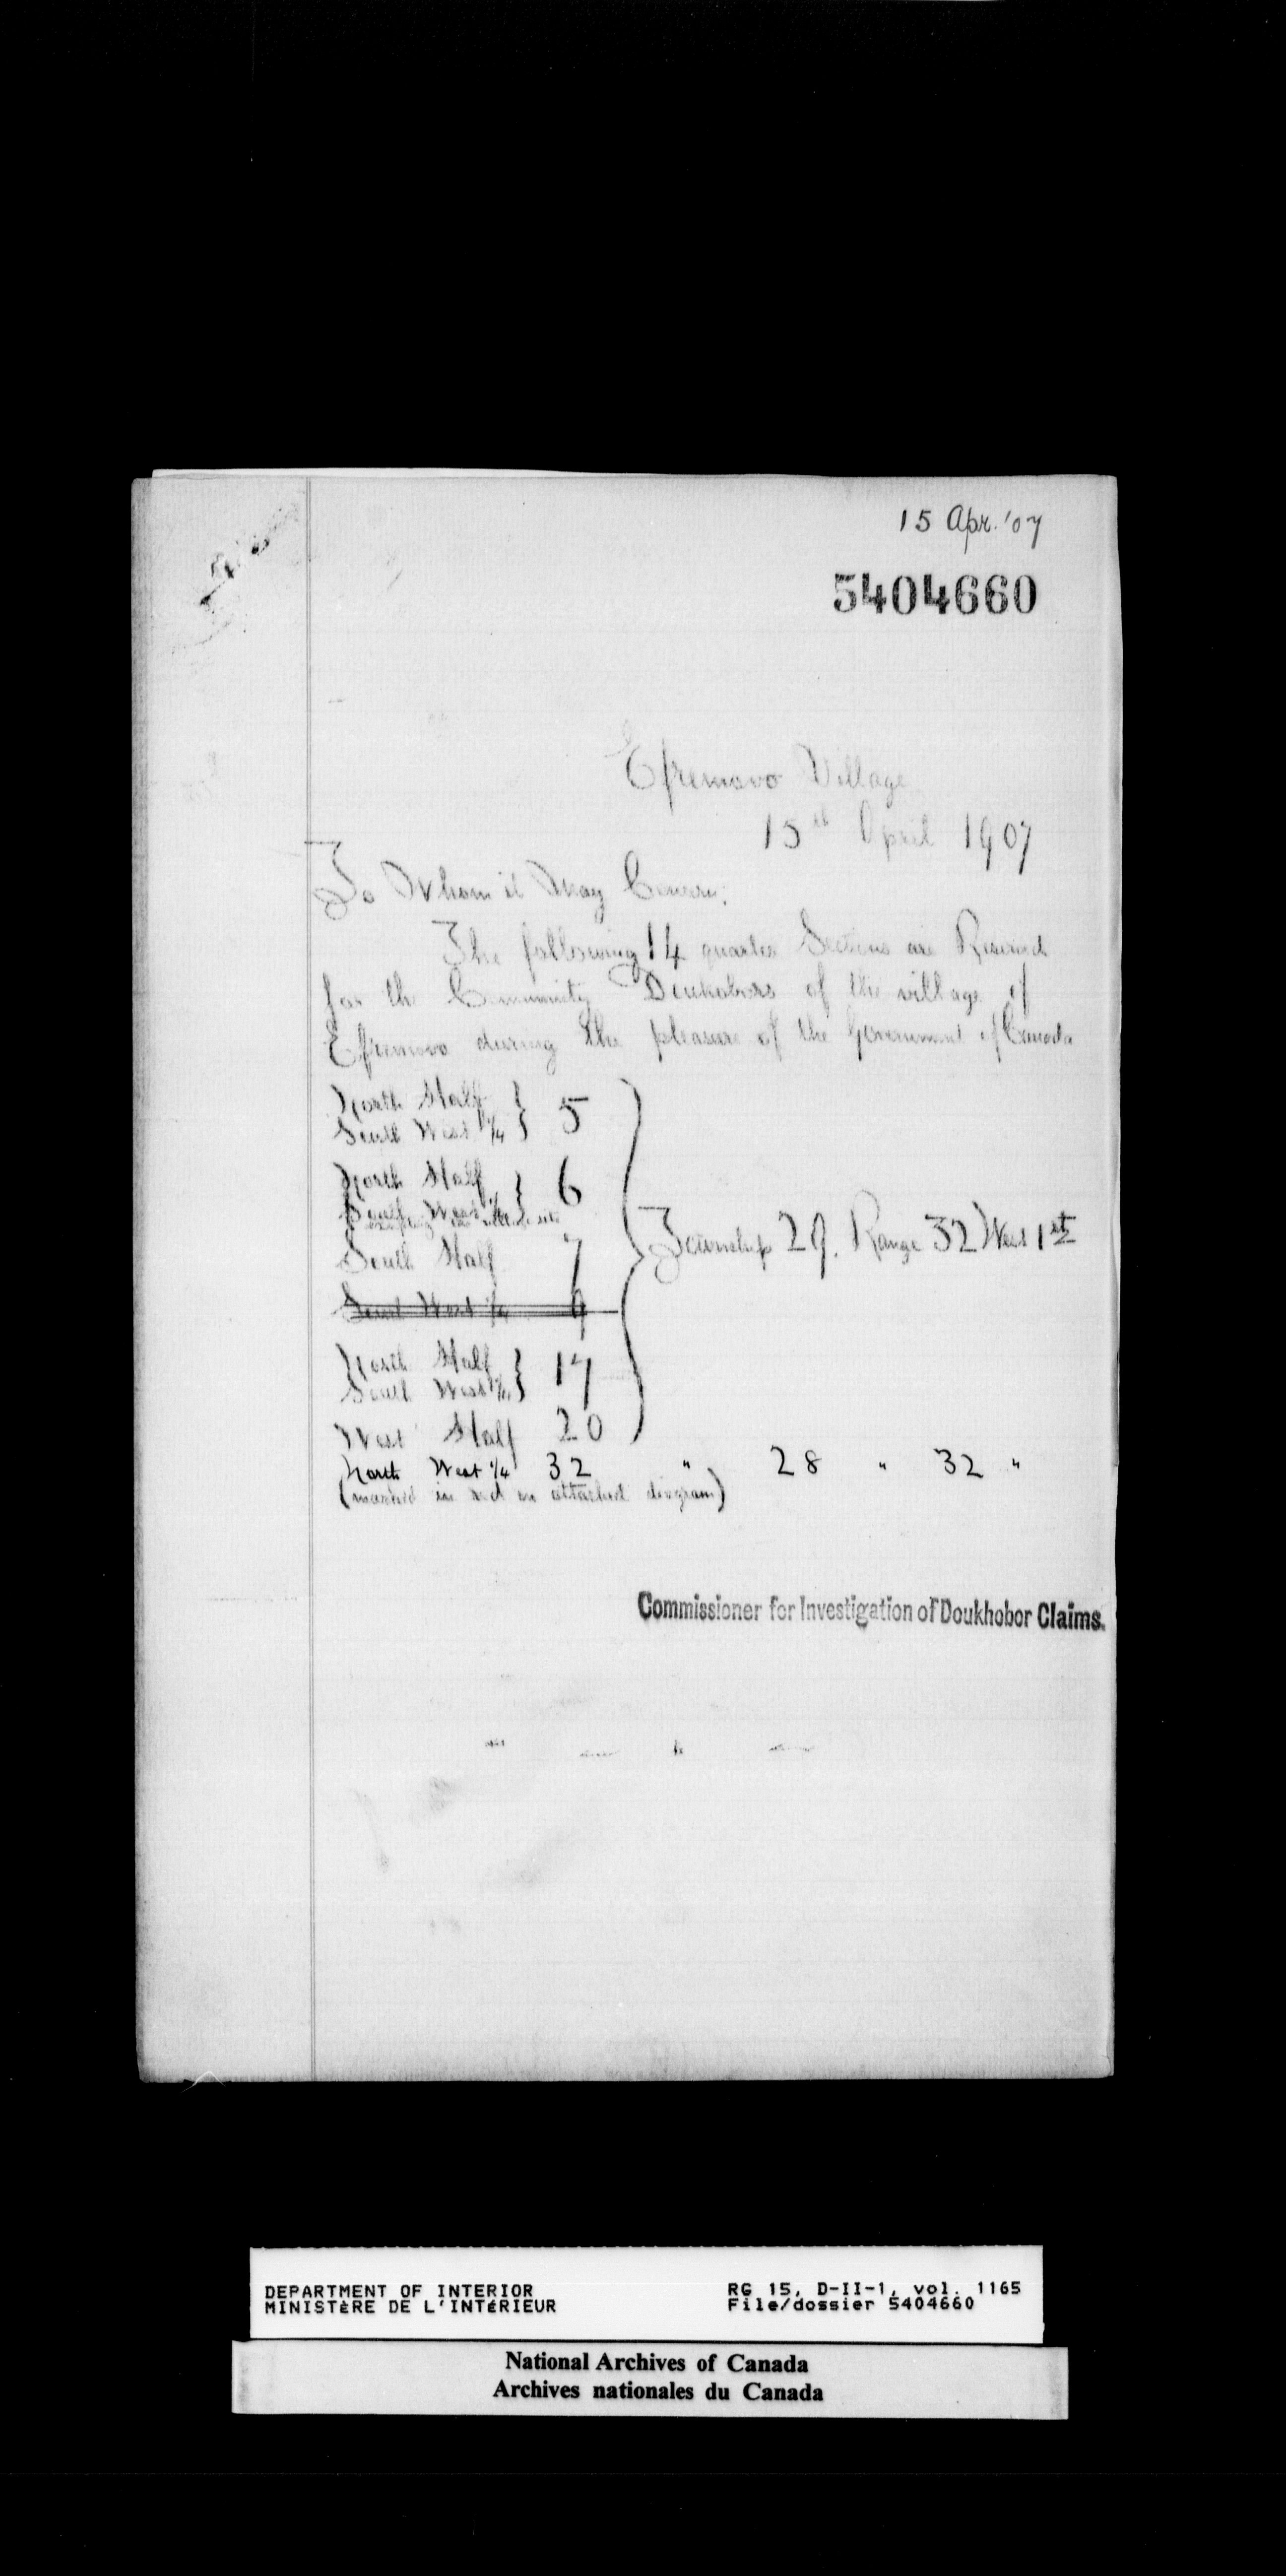 15 Apr. '07
5404660
Efremovo Village
15th April 1907
To Whom it May Concern;
The following 14 quarter Sections are Reserved
for the Community Doukobors of the village of
Efremovo during the pleasure of the Government of Canada
North Half } 5
South West 1/4 }
North Half } 6
South West 1/4 }
excepting the village site
South Half 7
Township 29. Range 32 West 1st
South West 1/4 9
North Half } 17
South West 1/4 }
West Half 20
North West 1/4 32 " 28 " 32 "
(marked in red on attached diagram)
Commissioner for Investigation of Doukhobor Claims.
DEPARTMENT OF INTERIOR RG 15, D-II-1, vol. 1165
MINISTèRE DE L'INTéRIEUR File/dossier 5404660
National Archives of Canada
Archives nationales du Canada